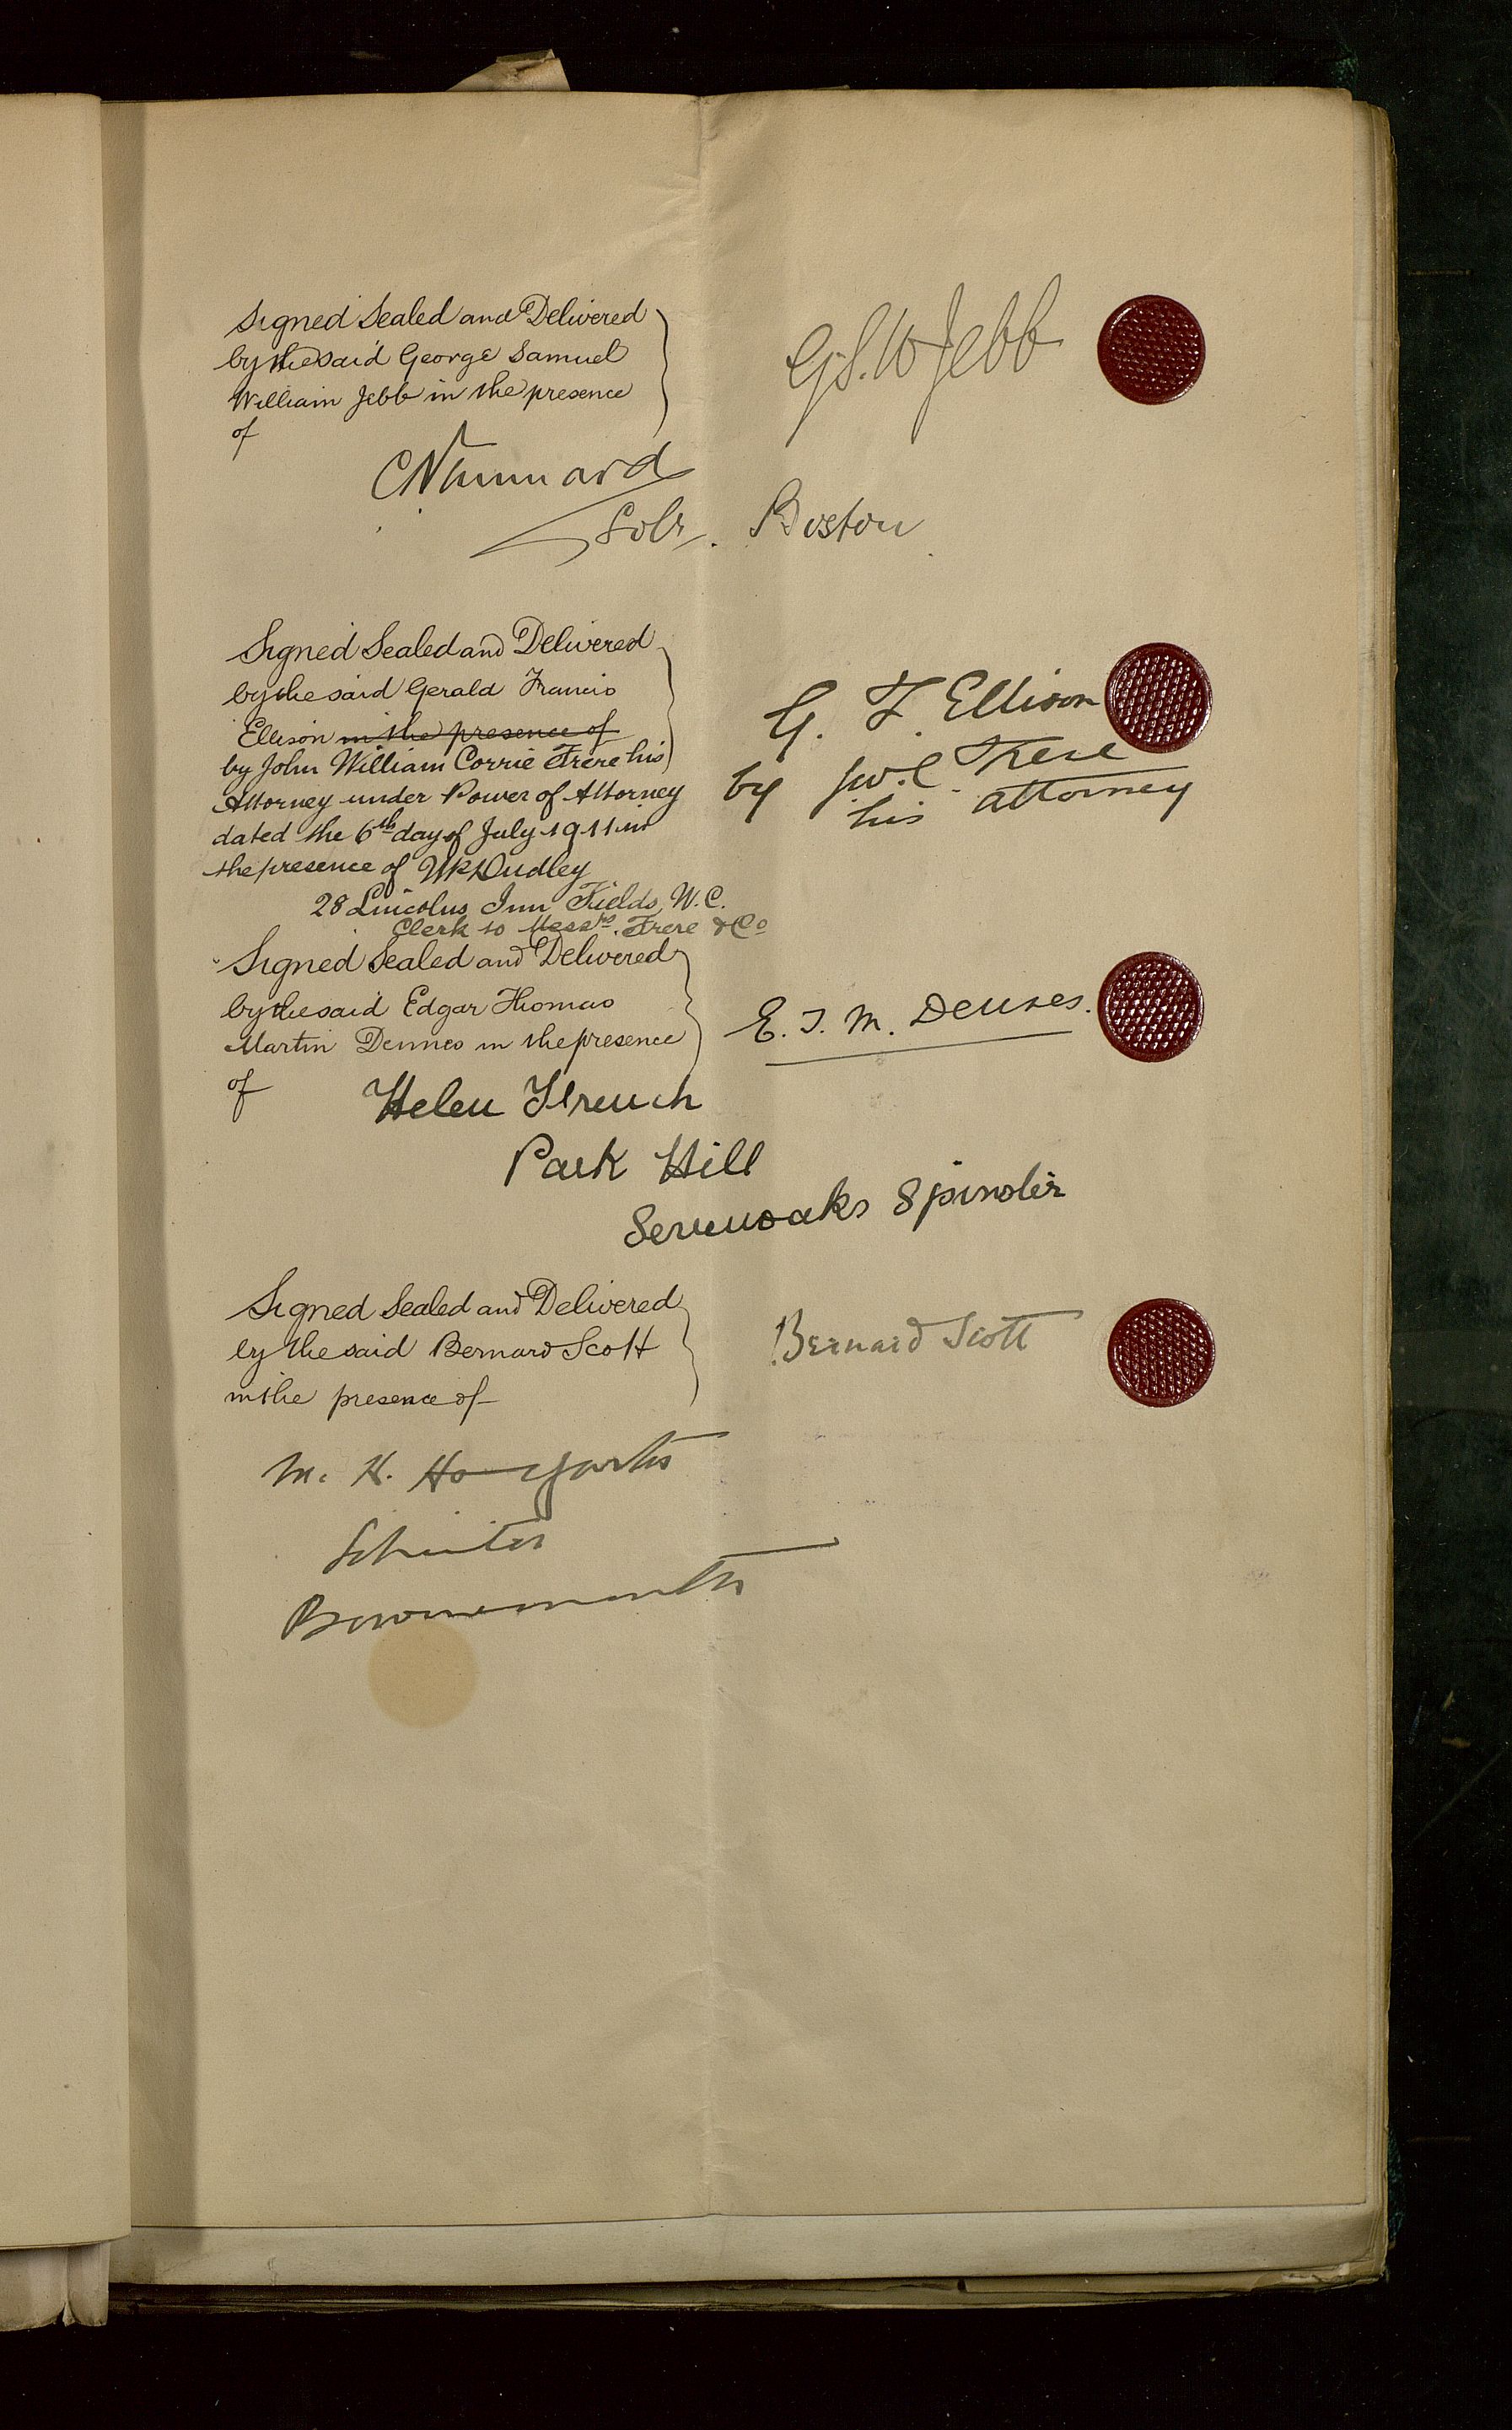 Signed Sealed and Delivered
by the said George Samuel
William Jebb in the presence
of
G.S.W Jebb
Solr. Boston
Signed Sealed and Delivered
by the said Gerald Francis
Ellison in the presence of
by John William Corrie Frere his
Attorney under Power of Attorney
dated the 6th day of July 1911 in
the presence of WR Dudley
28 Lincolns Inn Fields, W.C.
Clerk to Messrs. Frere & Co
G. F. Ellison
by J.W.C. Frere
his attorney
Signed Sealed and Delivered
by the said Edgar Thomas
Martin Dennes in the presence
of
E. T. M. Dennes.
Helen French
Park Hill
Sevenoaks Spinster
Signed Sealed and Delivered
by the said Bernard Scott
in the presence of
Bernard Scott
M. H.
Solicitor
Bournemouth